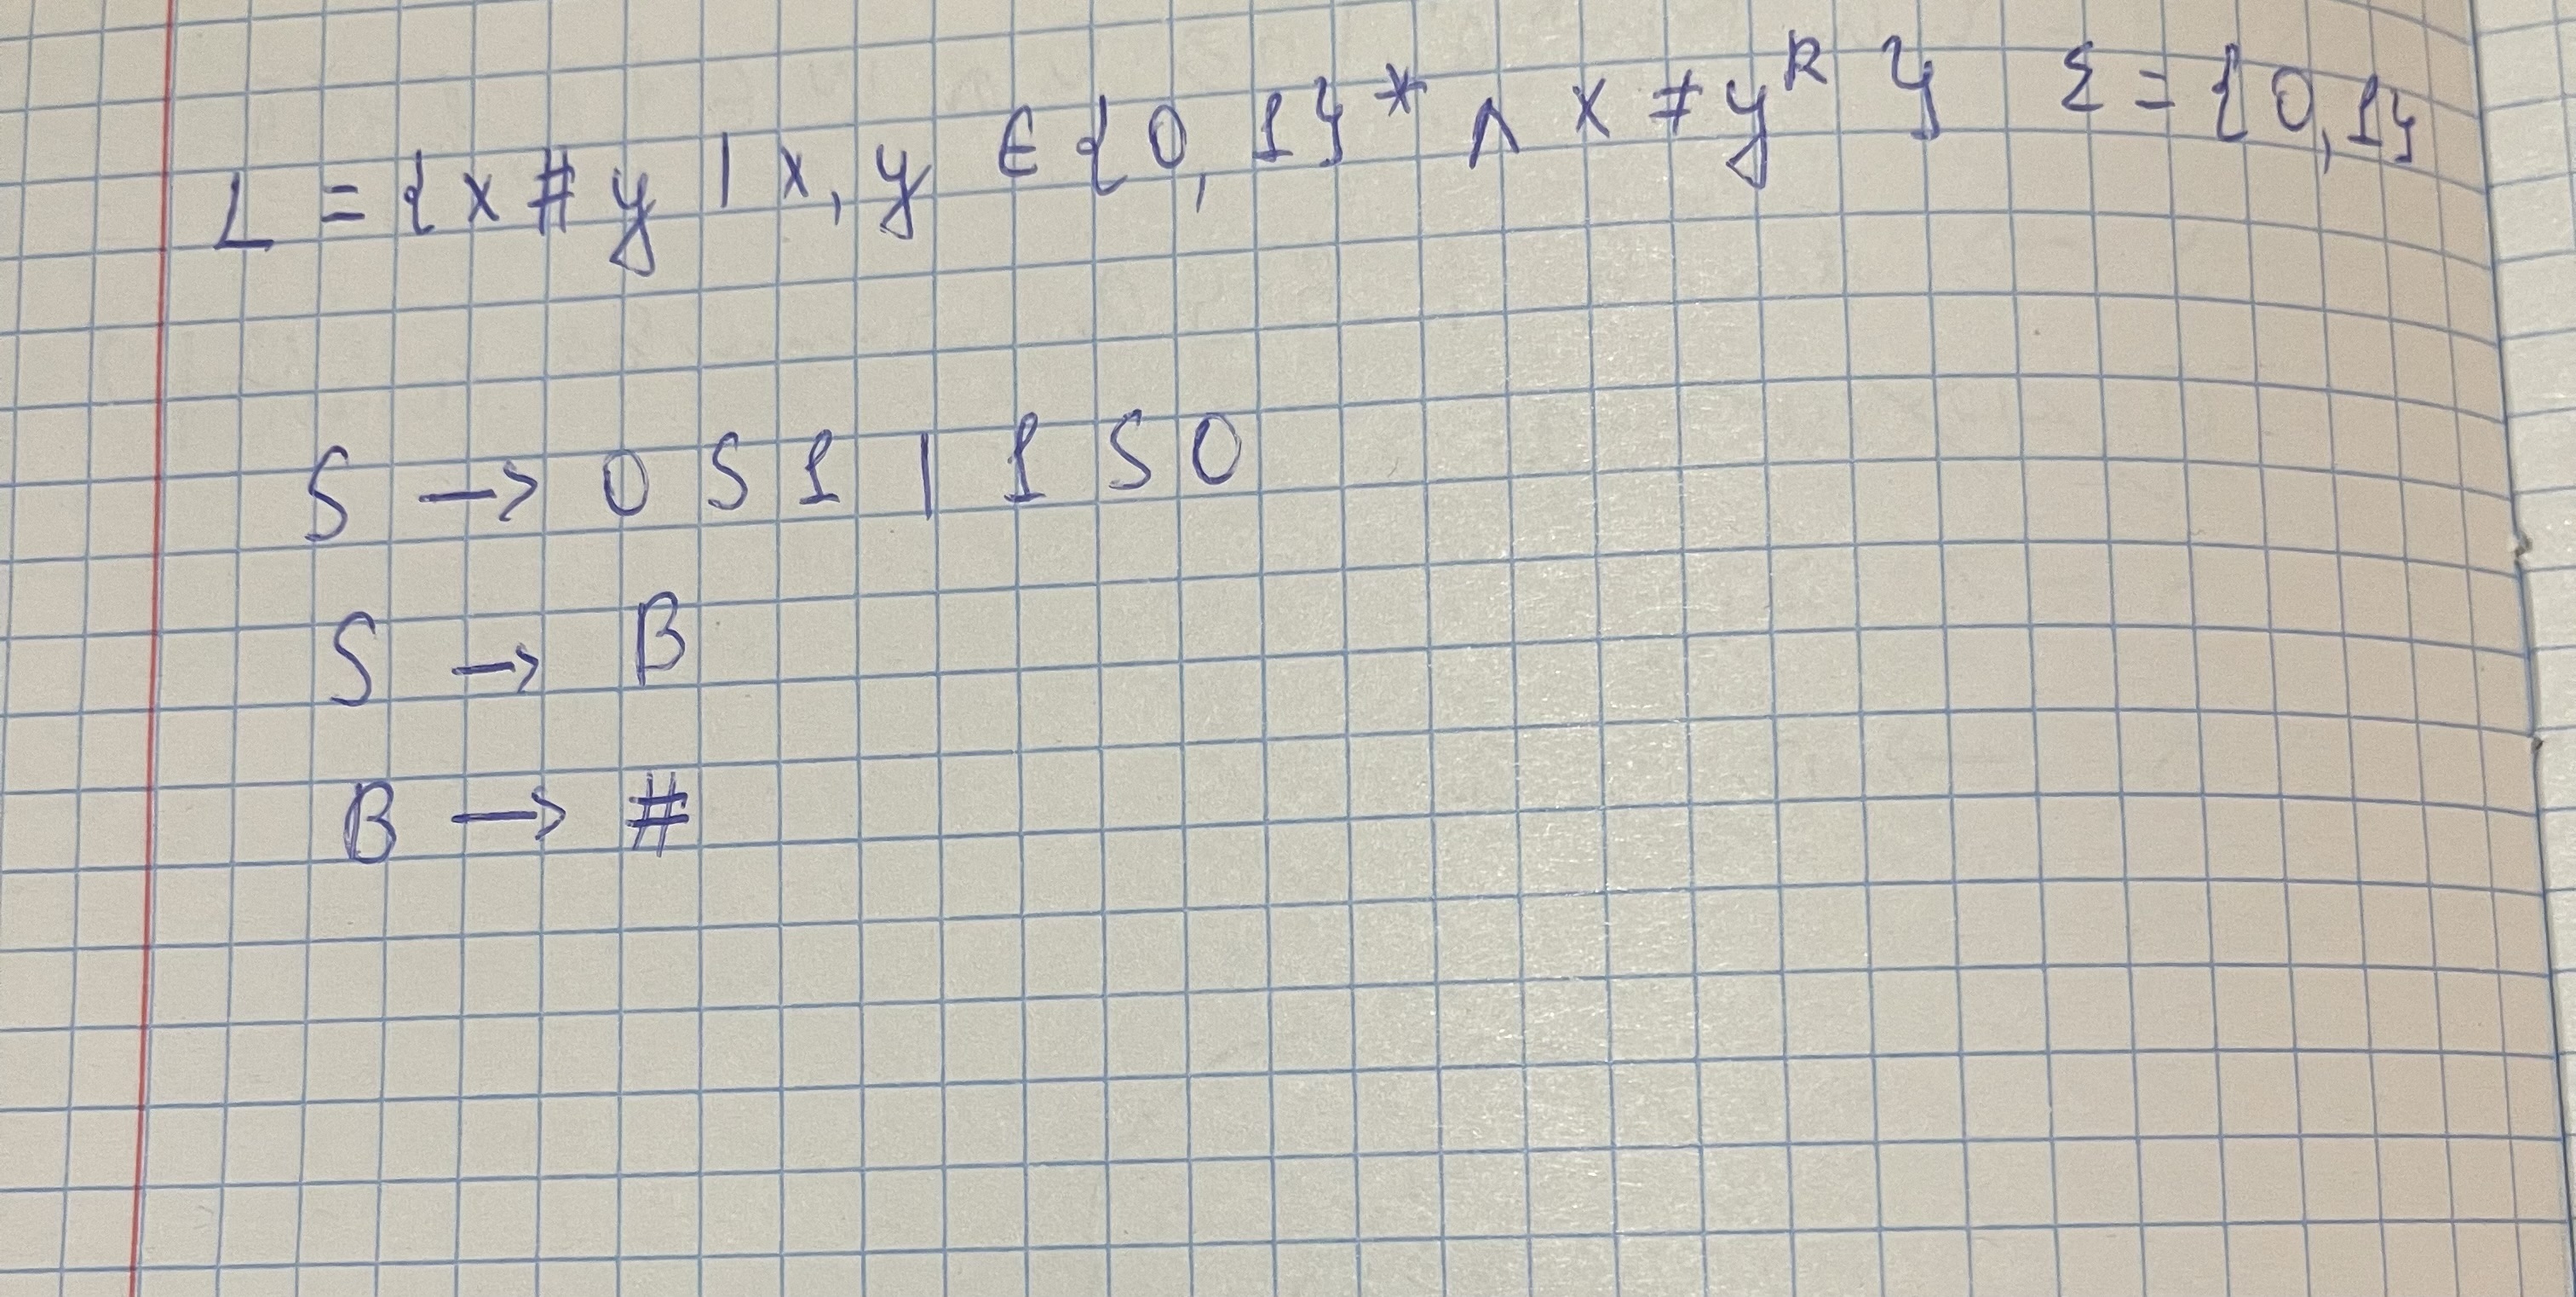 L = {x # y | x, y ∈ {0, 1}* ∧ x ≠ y^R} Σ = {0, 1}
S → 0 S 1 | 1 S 0
S → B
B → #